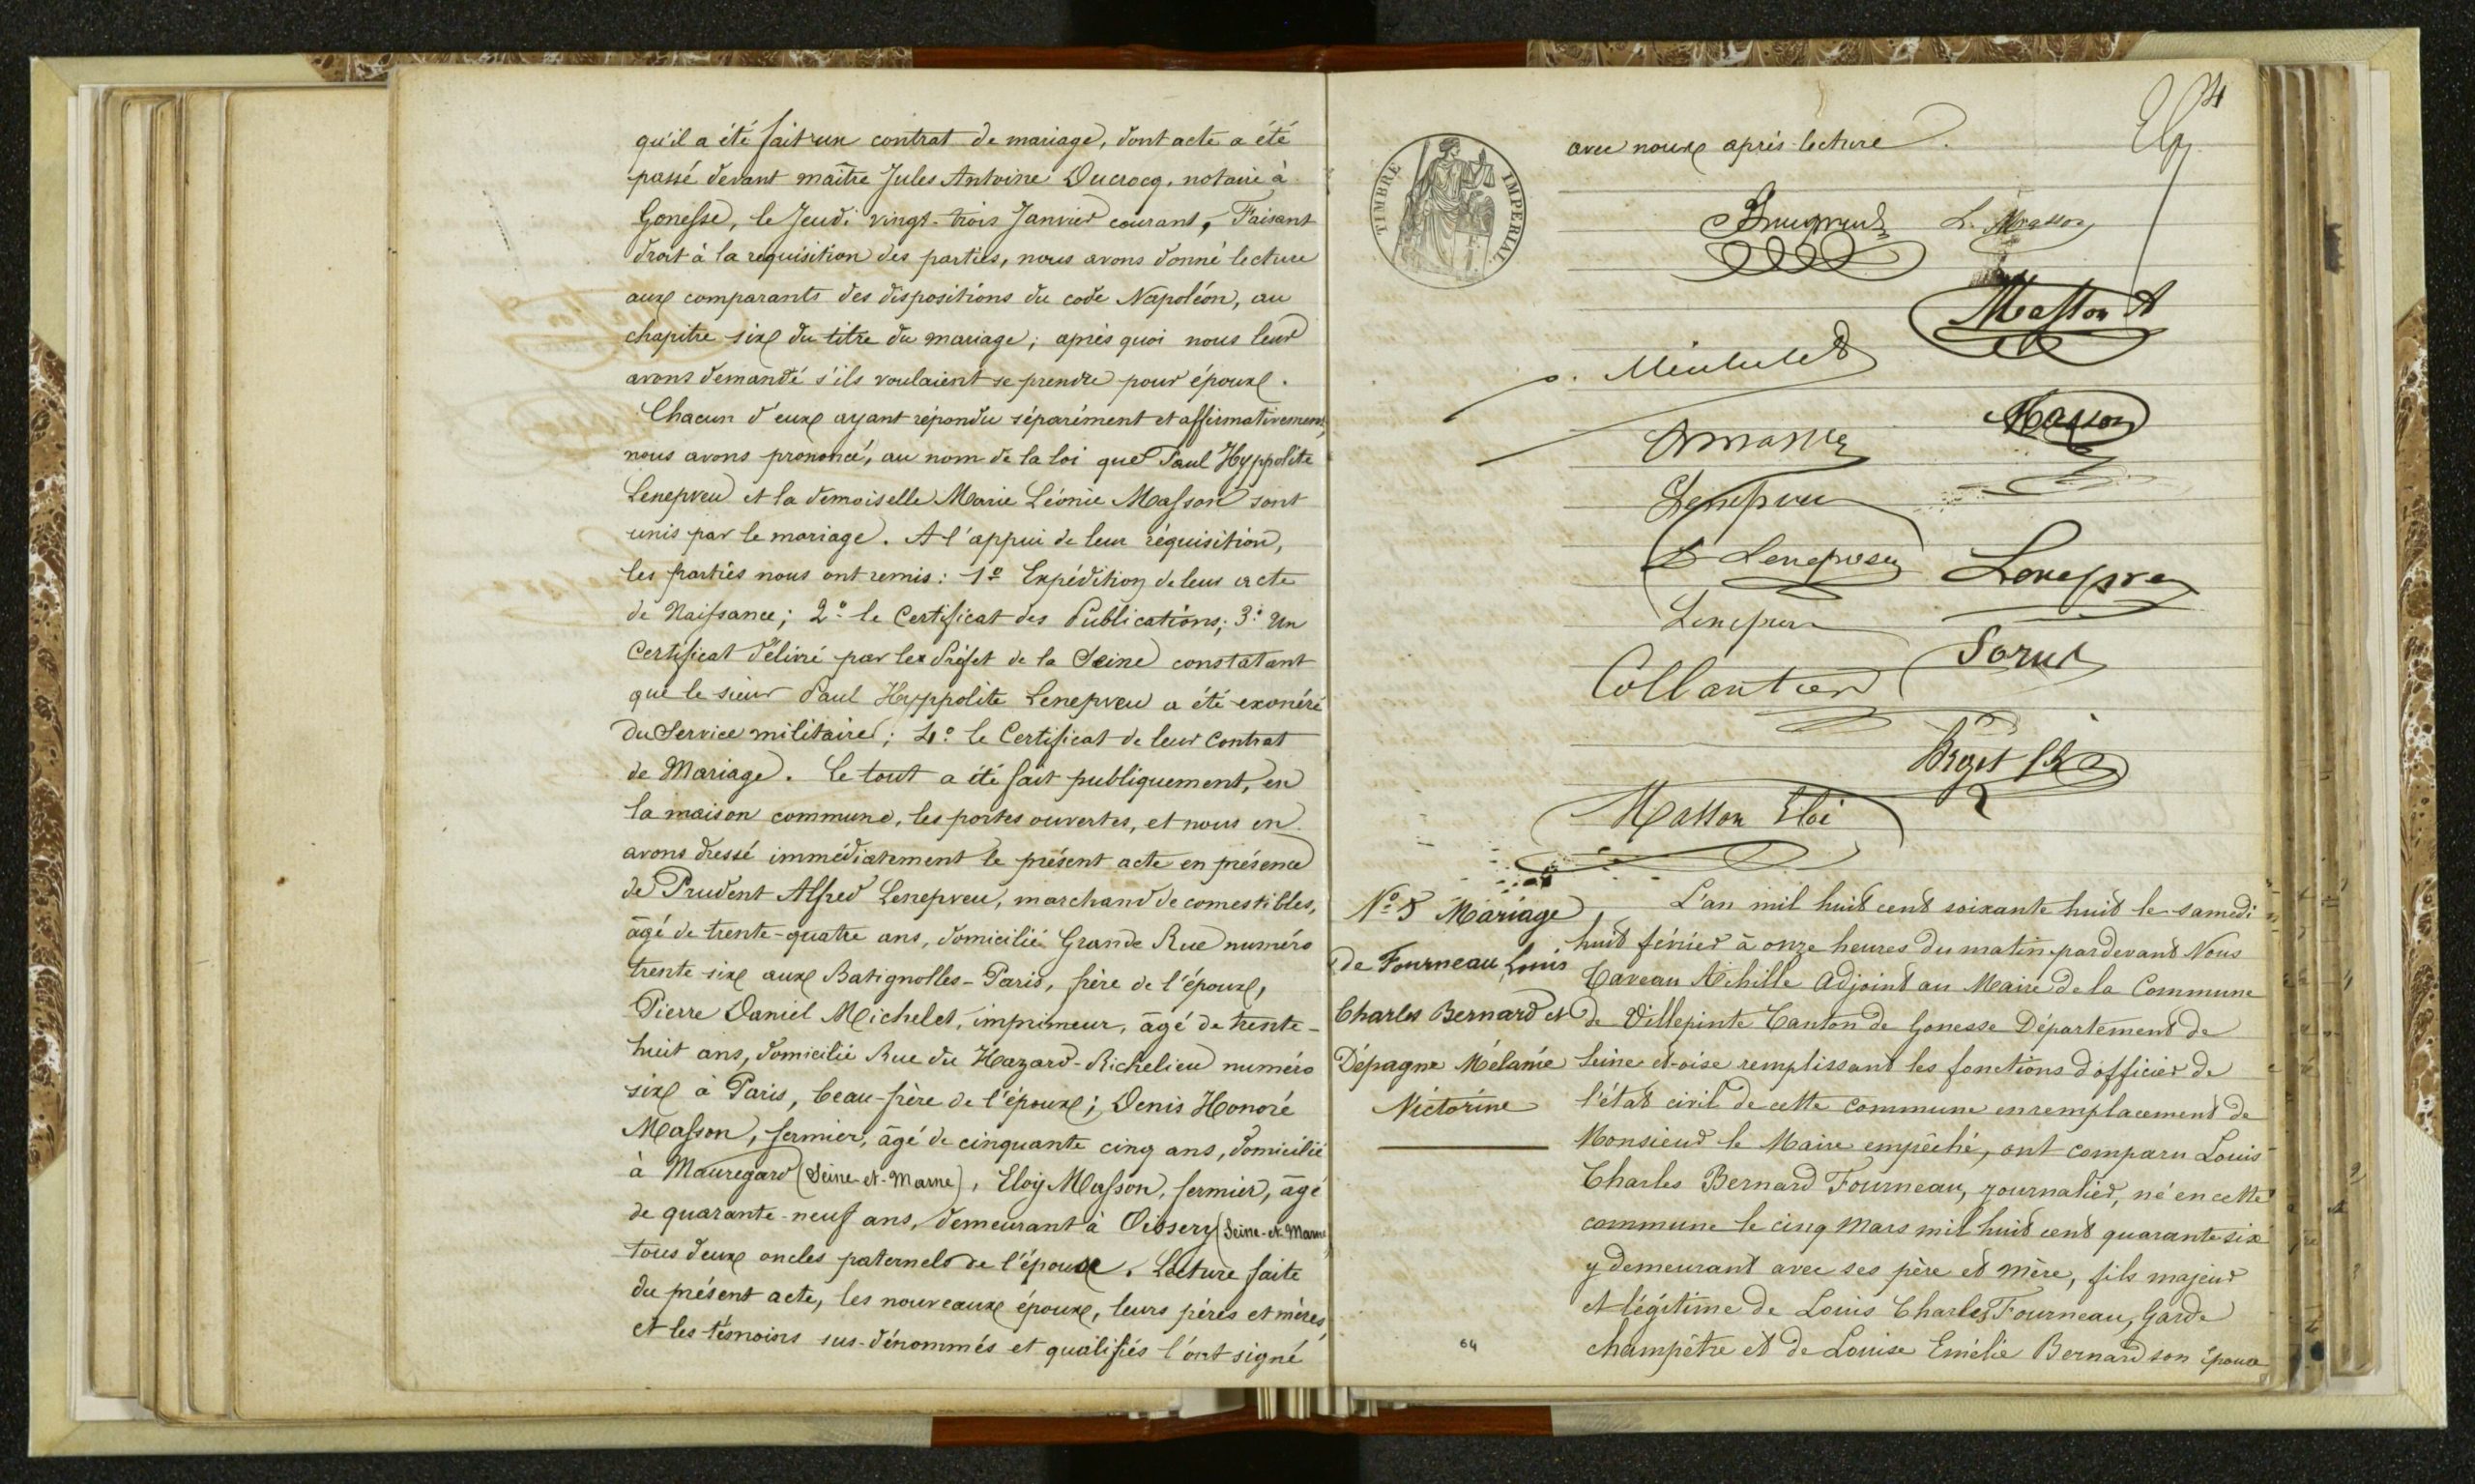 qu'il a été fait un contrat de mariage, dont acte a été
passé devant maître Jules Antoine Ducrocq, notaire à
Gonesse, le Jeudi vingt-trois Janvier courant, Faisant
droit à la requisition des parties, nous avons donné lecture
aux comparants des dispositions du code Napoléon, au
chapitre six du titre du mariage; après quoi nous leur
avons demandé s'ils voulaient se prendre pour époux.
Chacun d'eux ayant répondu séparément et affirmativement,
nous avons prononcé, au nom de la loi que Paul Hyppolite
Lenepveu et la demoiselle Marie Léonie Masson sont
unis par le mariage. A l'appui de leur réquisition,
les parties nous ont remis: 1º Expédition de leur acte
de Naissance; 2º le Certificat des Publications; 3º Un
Certificat délivré par le Préfet de la Seine constatant
que le sieur Paul Hyppolite Lenepveu a été exonéré
du Service militaire; 4º le Certificat de leur Contrat
de Mariage. Le tout a été fait publiquement, en
la maison commune, les portes ouvertes, et nous en
avons dressé immédiatement le présent acte en présence
de Prudent Alfred Lenepveu, marchand de comestibles,
âgé de trente-quatre ans, domicilié Grande Rue numéro
trente six aux Batignolles-Paris, frère de l'époux,
Pierre Daniel Michelet, imprimeur, âgé de trente-
huit ans, domicilié Rue du Hazard-Richelieu numéro
six à Paris, beau-frère de l'époux; Denis Honoré
Masson, fermier, âgé de cinquante cinq ans, domicilié
à Mauregard (Seine-et-Marne), Eloy Masson, fermier, âgé
de quarante-neuf ans, demeurant à Oissery (Seine-et-Marne
tous deux oncles paternels de l'épouse. Lecture faite
du présent acte, les nouveaux époux, leurs pères et mères,
et les témoins sus-dénommés et qualifiés l'ont signé
4
TIMBRE IMPERIAL
avec nous après lecture.
L. Masson
Masson A
Michelet
Masson
Lenepveu
Lenepveu
Lenepveu
Lenepveu
Collantier
Masson Eloi
Nº 5 Mariage
de Fourneau, Louis
Charles Bernard et
Dépagne Mélanie
Victorine
L'an mil huit cent soixante huit le samedi
huit février à onze heures du matin pardevant Nous
Caveau Achille Adjoint au Maire de la Commune
de Villepinte Canton de Gonesse Département de
Seine et-oise remplissant les fonctions d'officier de
l'état civil de cette commune en remplacement de
Monsieur le Maire empêché, ont comparu Louis
Charles Bernard Fourneau, journalier, né en cette
commune le cinq Mars mil huit cent quarante six
y demeurant avec ses père et mère, fils majeur
et légitime de Louis Charles Fourneau, Garde
champêtre et de Louise Emélie Bernard son épouse
64